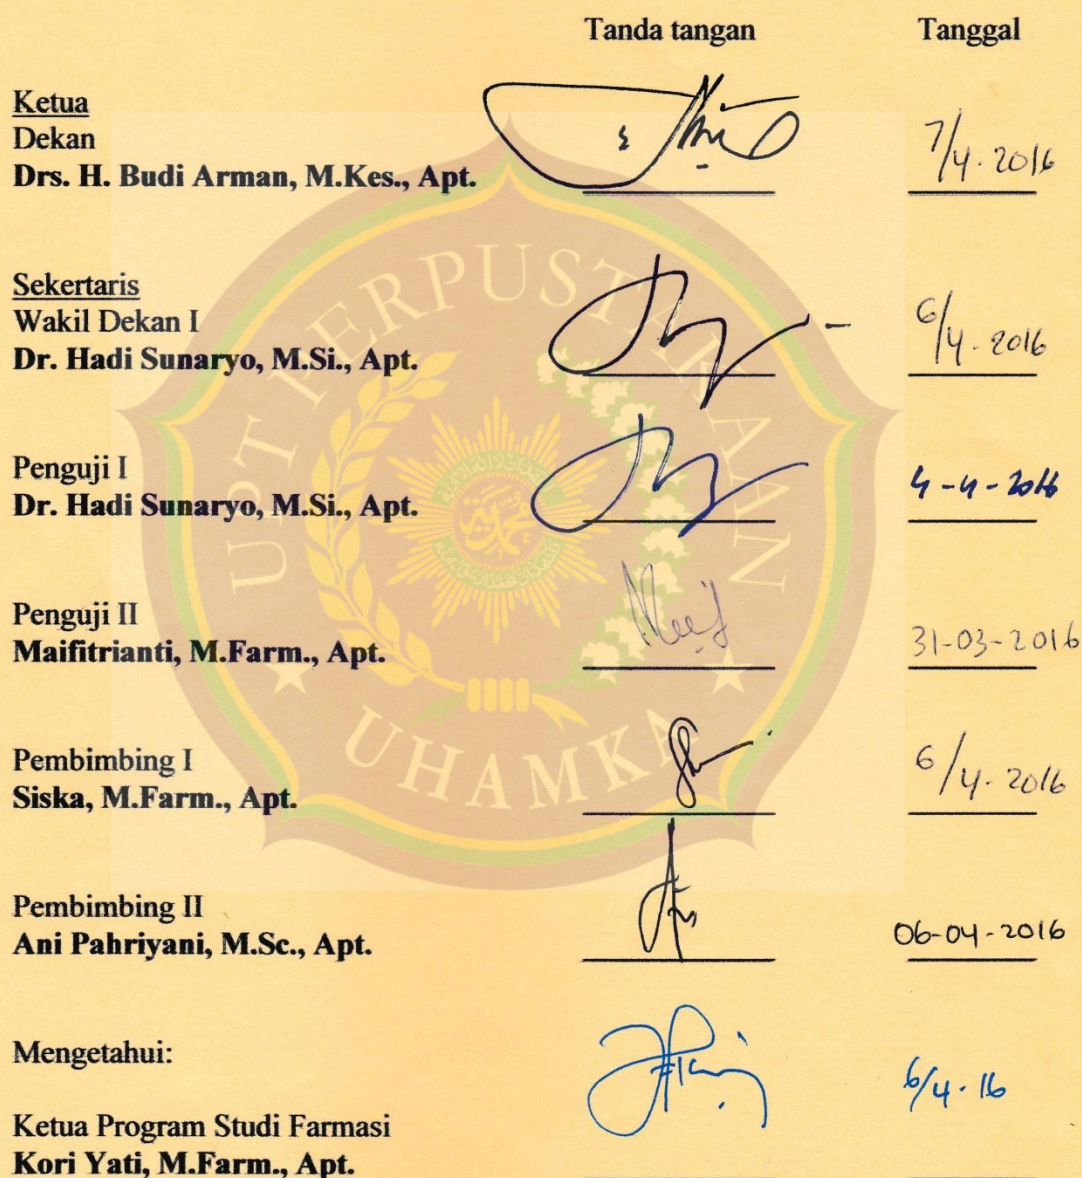 Tanda tangan Tanggal
Ketua
Dekan
Drs. H. Budi Arman, M.Kes., Apt. 7/4. 2016
Sekertaris
Wakil Dekan I
Dr. Hadi Sunaryo, M.Si., Apt. 6/4. 2016
Penguji I
Dr. Hadi Sunaryo, M.Si., Apt. 4-4-2016
Penguji II
Maifitrianti, M.Farm., Apt. 31-03-2016
Pembimbing I
Siska, M.Farm., Apt. 6/4. 2016
Pembimbing II
Ani Pahriyani, M.Sc., Apt. 06-04-2016
Mengetahui:
6/4. 16
Ketua Program Studi Farmasi
Kori Yati, M.Farm., Apt.
UPT PERPUSTAKAAN
UHAMKA